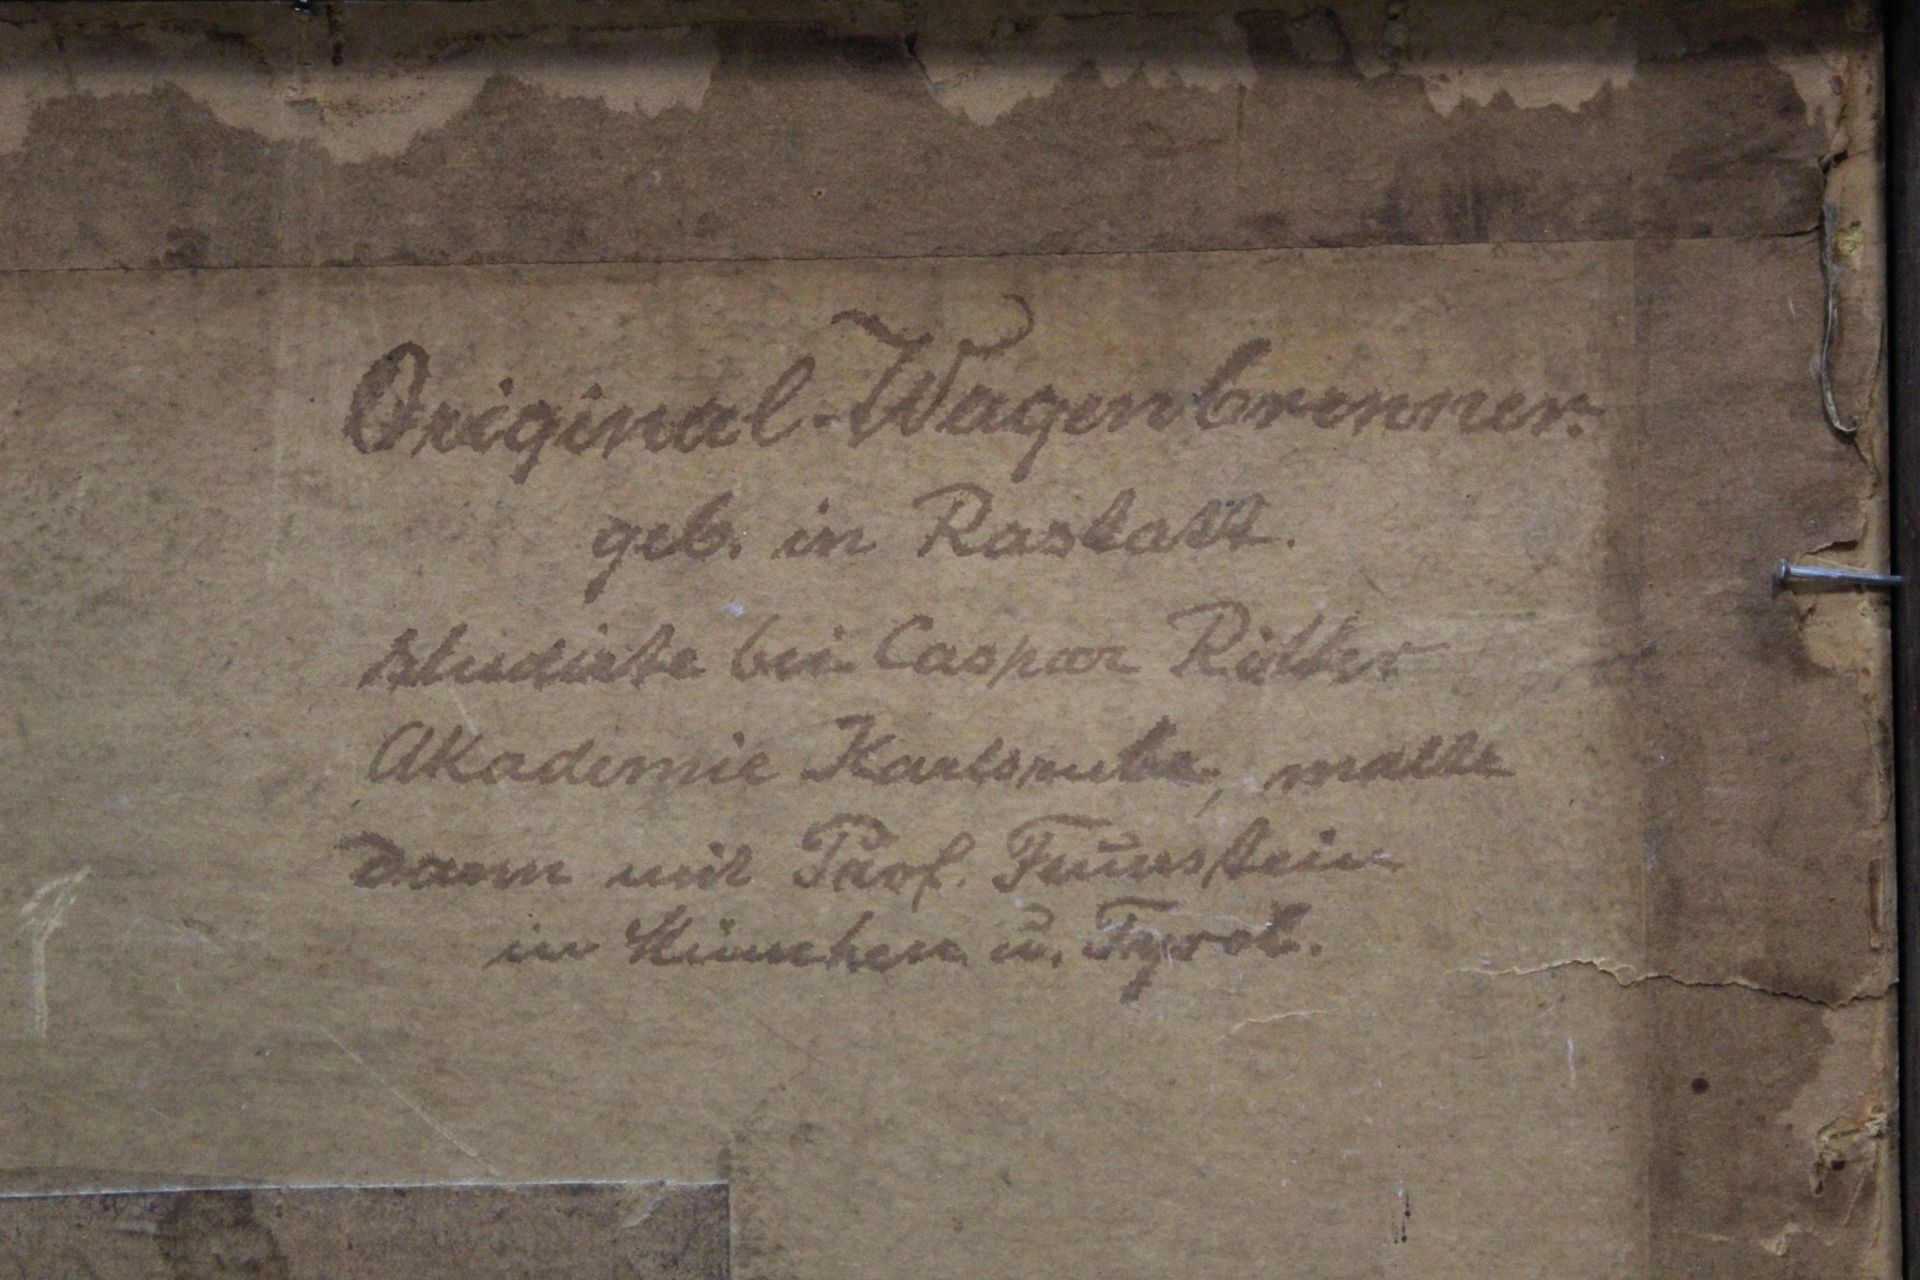 Original-Wagenbrenner.
geb. in Rastatt.
studierte bei Caspar Ritter
Akademie Karlsruhe, malte
dann mit Prof.
in München u. Tyrol.